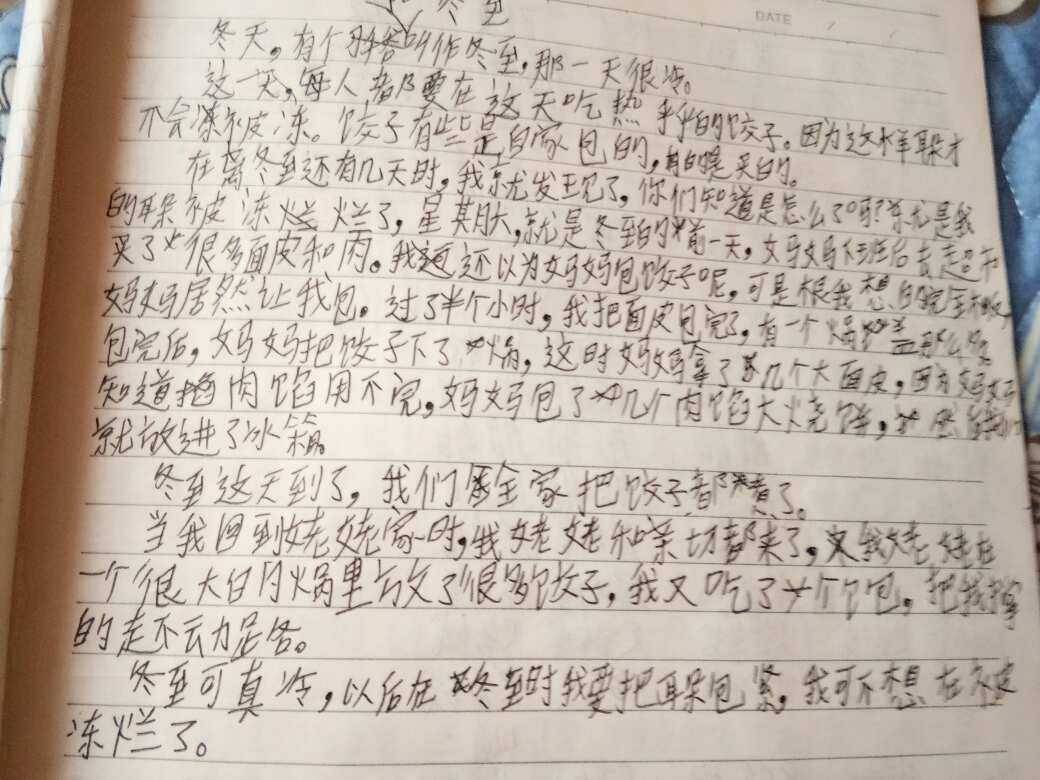 冬至
DATE
冬天,有个叫作冬至,那一天很冷。
这一天,每人都要在这天吃热乎乎的饺子。因为这样耳朵才
不会冻被冻。饺子有些是自家包的,有的是买的。
在离冬至还有几天时,我就发现了,你们知道是怎么了吗?就是我
的耳朵被冻烂了,星期六,就是冬至的前一天,妈妈下班后去超市
买了很多面皮和肉。我还以为妈妈包饺子呢,可是根我想的完全
妈妈居然让我包。过了半个小时,我把面皮包完了,有一个锅盖那么多。
包完后,妈妈把饺子下了锅,这时妈妈拿了几个大面皮,因为妈妈
知道肉馅用不完,妈妈包了几个肉馅大火烧饼,然后
就放进了冰箱。
冬至这天到了,我们全家把饺子都煮了。
当我回到姥姥家时,我姥姥和亲切都来了,我姥姥在
一个很大的火锅里放了很多饺子,我又吃了个包,把我撑
的走不动路。
冬至可真冷,以后在冬至时我要把耳朵包紧,我可不想在被
冻烂了。